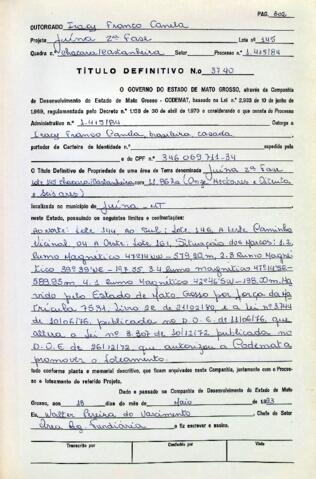 PAG. 302
OUTORGADO Iracy Franco Canela
Projeto Juína 2ª Fase Lote nº 145
Quadra n. chacara/castanheira Setor Processo n.º 1.415/84
TÍTULO DEFINITIVO N.o 3740
O GOVERNO DO ESTADO DE MATO GROSSO, através da Companhia
de Desenvolvimento do Estado de Mato Grosso - CODEMAT, baseado na Lei n.º 2.923 de 10 de junho de
1969, regulamentada pelo Decreto n.º 1.138 de 30 de abril de 1970 e considerando o que consta do Processo
Administrativo n.º 1.415/84 Outorga a
Iracy Franco Canela, brasileira, casada
portador da Carteira de Identidade n.º expedida pela
e do CPF n.º 346 069 711-34
O Título Definitivo de Propriedade de uma área de Terra denominada Juína 2ª Fase
Lote 145 chacara/castanheira com 11.96 ha (Onze Hectares e
seis ares)
localizada no município de Juína, MT
neste Estado, possuindo os seguintes limites e confrontações:
Ao Norte: Lote 144, Ao Sul: Lote 146, A Leste Caminho
Vicinal, ou A Oeste: Lote 161, Situação dos Marcos: 1.2
Rumo Magnético 2.3 Rumo Magné
tico 3.4 Rumo Magnético
4.1 Rumo Magnético Ha
vido pelo Estado de Mato Grosso por força da Ma
trícula 7531, Livro 2E de 21/02/80, e a Lei nº 3744
de 10/06/76, publicada no D.O.E. de 11/06/76, que
altera a Lei nº 3.307 de 20/12/72 publicada no
D.O.E de 26/12/72 que autorizou a Codemata
promover o Loteamento.
tudo conforme planta e memorial descritivo, que ficam arquivados nesta Companhia, juntamente com o Processo
e loteamento do referido Projeto.
Dado e passado na Companhia de Desenvolvimento do Estado de Mato
Grosso, aos 18 dias do mês de Maio
Eu, Walter Pereira do Nascimento, Chefe do Setor
Área Reg. Fundiária a fiz escrever e assino.
Transcrito por Conferido por Visto